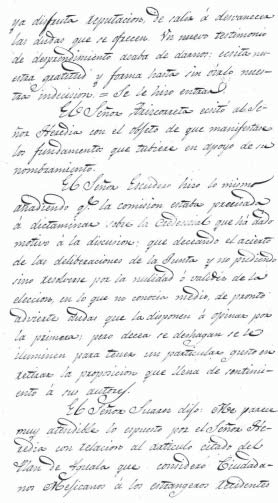 ya disfruta reputacion, de salir á desvanecer
las dudas que se ofrecen. Un nuevo testimonio
de desprendimiento acaba de darnos: ecsita nu-
estra gratitud y forma hasta sin órals nues-
tra indecision. = Se le hizo entrar
El Señor Aiscorreta ecsitó al Se-
ñor Heredia con el objeto de que manifestara
los fundamentos que tubiere en apoyo de su
nombramiento.
El Señor Escudero hizo lo mismo
añadiendo q.e la comision estaba precisada
á dictaminar sobre la Credencial que ha dado
motivo á la discucion; que deceando el acierto
de las deliberaciones de la Junta y no pudiendo
sino resolverse por la nulidad ó valides de la
eleccion, en lo que no conocia medio, de pronto
advierte dudas que la disponen á opinar por
la primera; pero decea se deshagan se le
iluminen para tener un particular gusto en
retirar la proposicion que llena de sentimi-
ento á sus autores.
El Señor Suares dijo: Me parece
muy atendible lo espuesto por el Señor He-
redia con relacion al articulo citado del
Plan de Iguala que considera Ciudada-
nos Mejicanos á los estrangeros recidentes